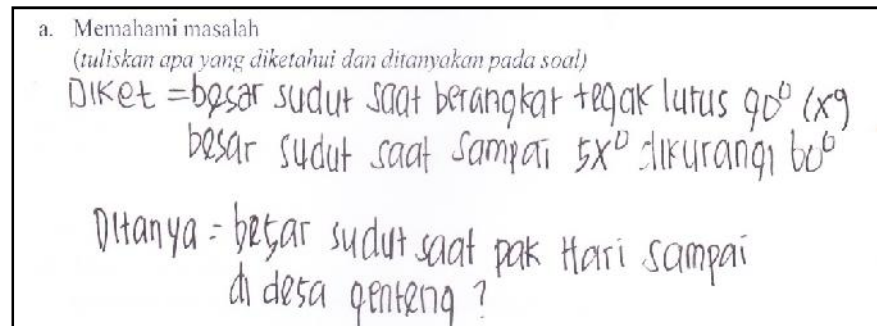 a. Memahami masalah
(tuliskan apa yang diketahui dan ditanyakan pada soal)
Diket = besar sudut saat berangkat tegak lurus 90° (x°)
besar sudut saat sampai 5x° dikurangi 60°
Ditanya = besar sudut saat pak Hari sampai
di desa genteng ?